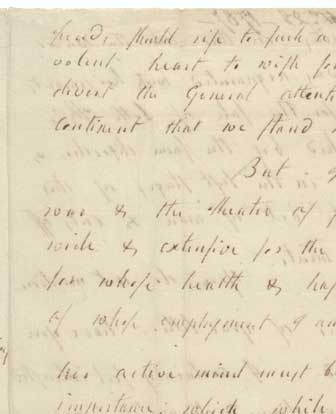 heads, should rise to such a
volent heart to wish for
divert the General attent
continent that we stand
But
war & the theatre of
wide & extensive for the
for whose health & hap
of whose employment I am
her active mind must b
importance which while